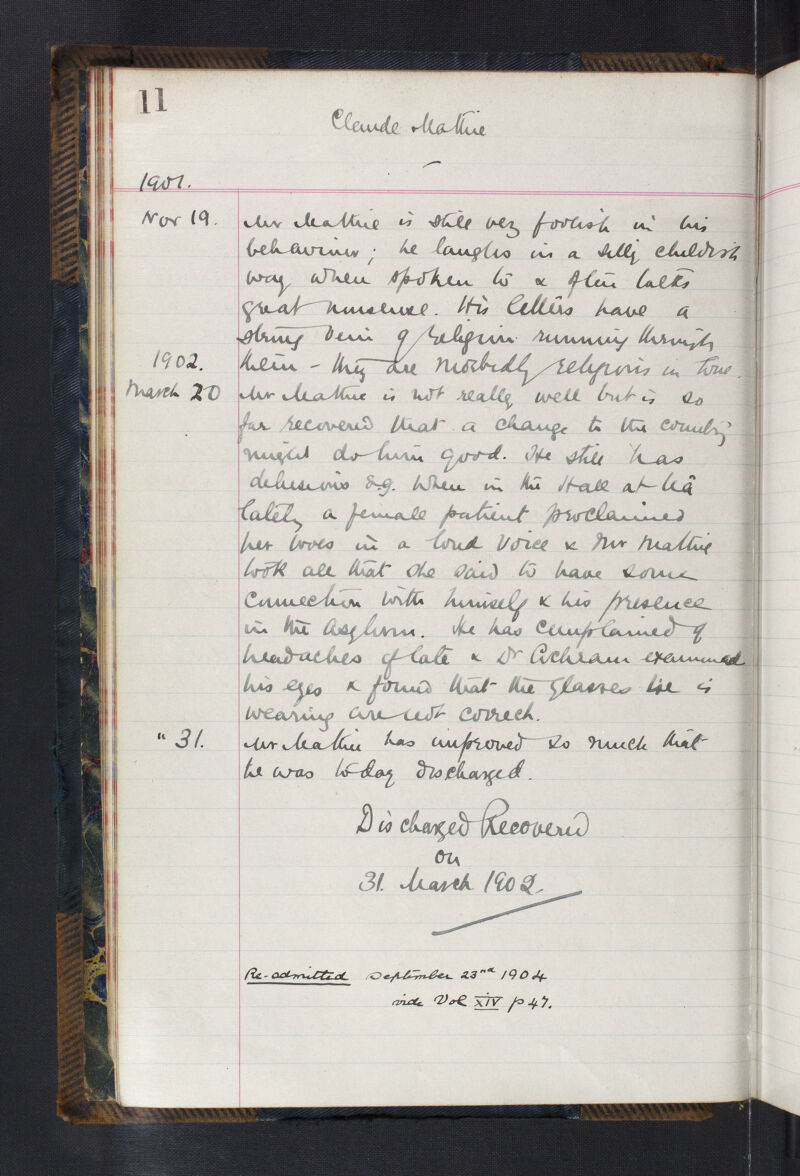 11
Claude Mathie
1901.
Nov 19. Mr Mathie is still very foolish in his
behaviour; he laughs in a silly childish
way when spoken to & often talks
great nonsense. His letters have a
strong vein of religion running through
1902. them - they are morbidly religious in tone.
March 20 Mr Mathie is not really well but is so
far recovered that a change to the country
might do him good. He still has
delusions e.g. when in the Hall at
lately a female patient proclaimed
her loves in a loud voice & Mr Mathie
took all that she said to have some
connection with himself & his presence
in the Asylum. He has complained of
headaches of late & Dr examined
his eyes & found that the glasses he is
wearing are not correct.
" 31. Mr Mathie has improved so much that
he was to day discharged.
Discharged Recovered
on
31. March 1902.
Re-admitted September 23rd 1904
vide Vol XIV p 47.